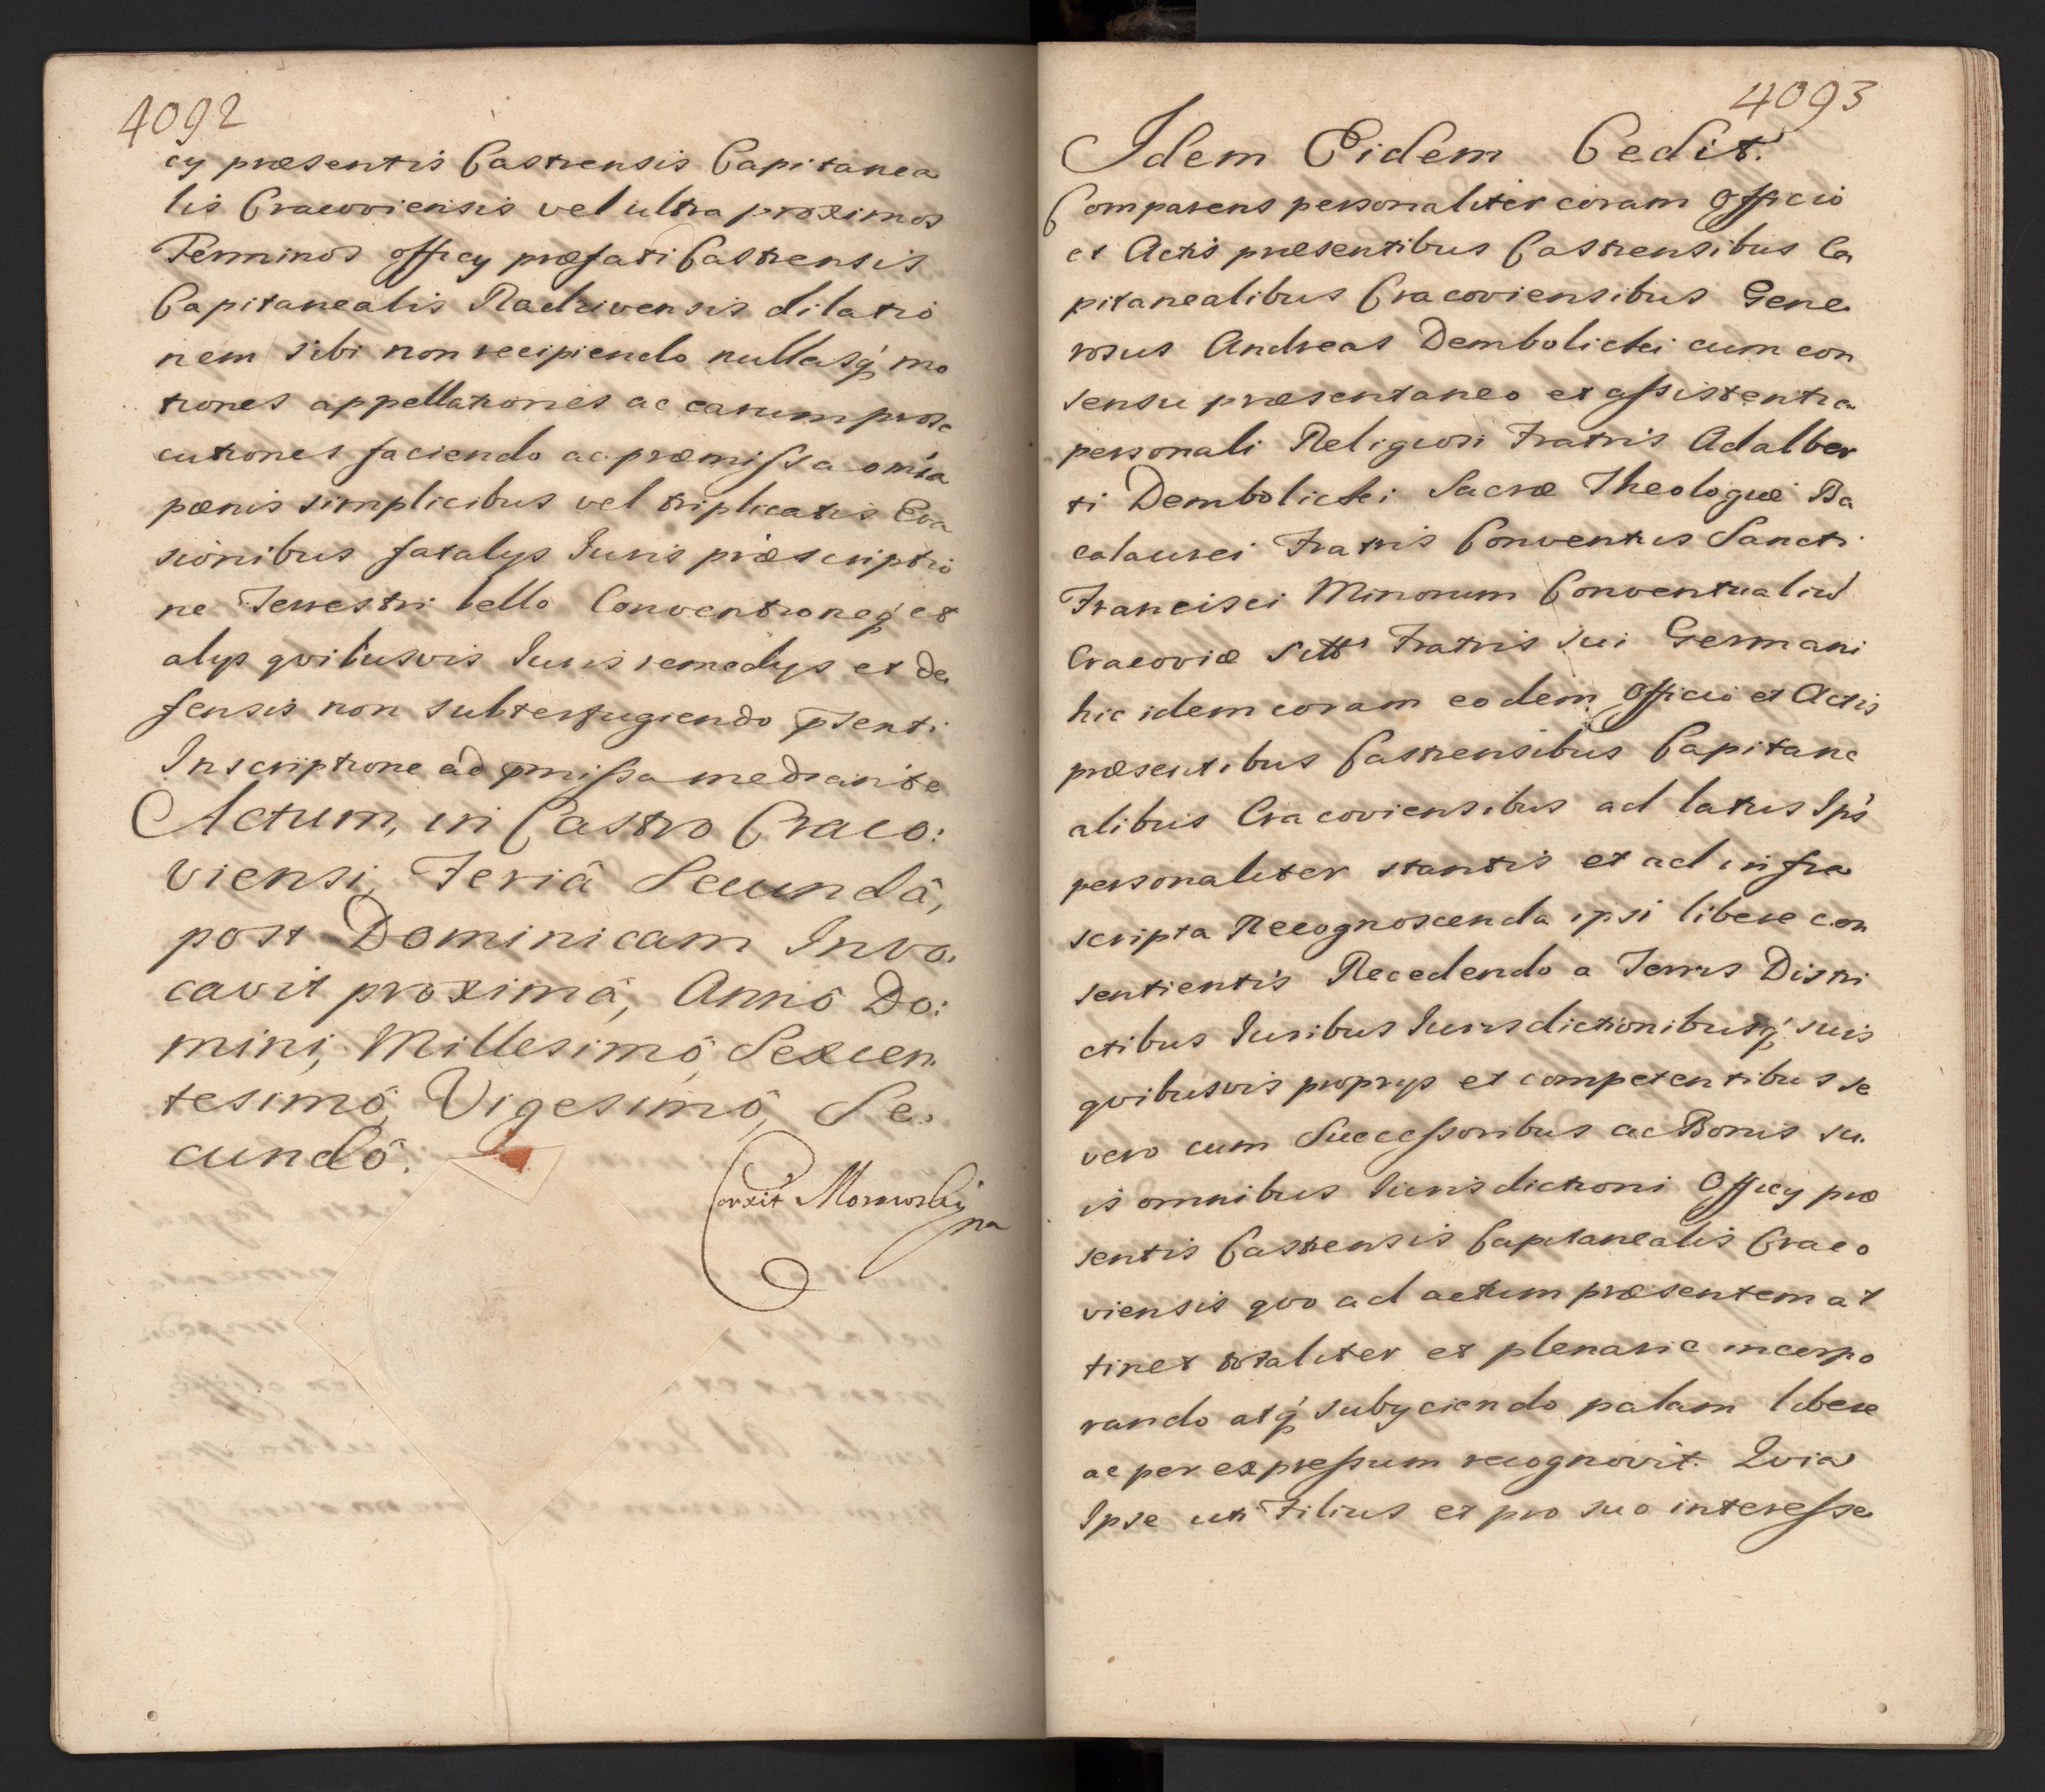 4092
cy præsentis Castrensis Capitanea
lis Cracoviensis vel ultra proximos
Terminos officy præfati Castrensis
Capitanealis Radzivensis dilatio
nem sibi non recipiendo nullasq́ mo
tiones appellationes ac earum prose
cutiones faciendo ac præmissa omīa
pœnis simplicibus vel triplicatis Eva
sionibus fatalys Juris præscriptio
ne Terrestri bello Conventioneq́ et
alys qvibusvis Juris remedys et de
fensis non subterfugiendo p̄senti
Inscriptione ad p̄missa mediante
Actum, in Castro Craco:
viensi, Feriâ Secundâ,
post Dominicam Invo:
cavit proximâ, Annô Do:
mini, Millesimô, Sexcen
tesimô, Vigesimô, Se:
cundô.
Corxit Morawski
mp
4093
Idem Eidem Cedit.
Comparens personaliter coram Officio
et Actis præsentibus Castrensibus Ca
pitanealibus Cracoviensibus Gene
rosus Andreas Dembolicki cum con
sensu præsentaneo et assistentia
personali Religiosi Fratris Adalber
ti Dembolicki Sacræ Theologiæ Ba
calaurei Fratris Conventus Sancti
Francisci Minorum Conventualiū
Cracoviæ Fratris sui Germani
hic idem coram eodem Officio et Actis
præsentibus Castrensibus Capitane
alibus Cracoviensibus ad latus Ips̄
personaliter stantis et ad infra
scripta Recognoscenda ipsi libere con
sentientis Recedendo a Terris Distri
ctibus Juribus Jurisdictionibusq́ suis
qvibusvis proprys et competentibus se
vero cum Successoribus ac Bonis su
is omnibus Jurisdictioni Officy præ
sentis Castrensis Capitanealis Craco
viensis qvo ad actum præsentem at
tinet totaliter et plenarie incorpo
rando atq́ subyciendo palam libere
ac per expressum recognovit. Qvia
Ipse uti Filius et pro suo interesse